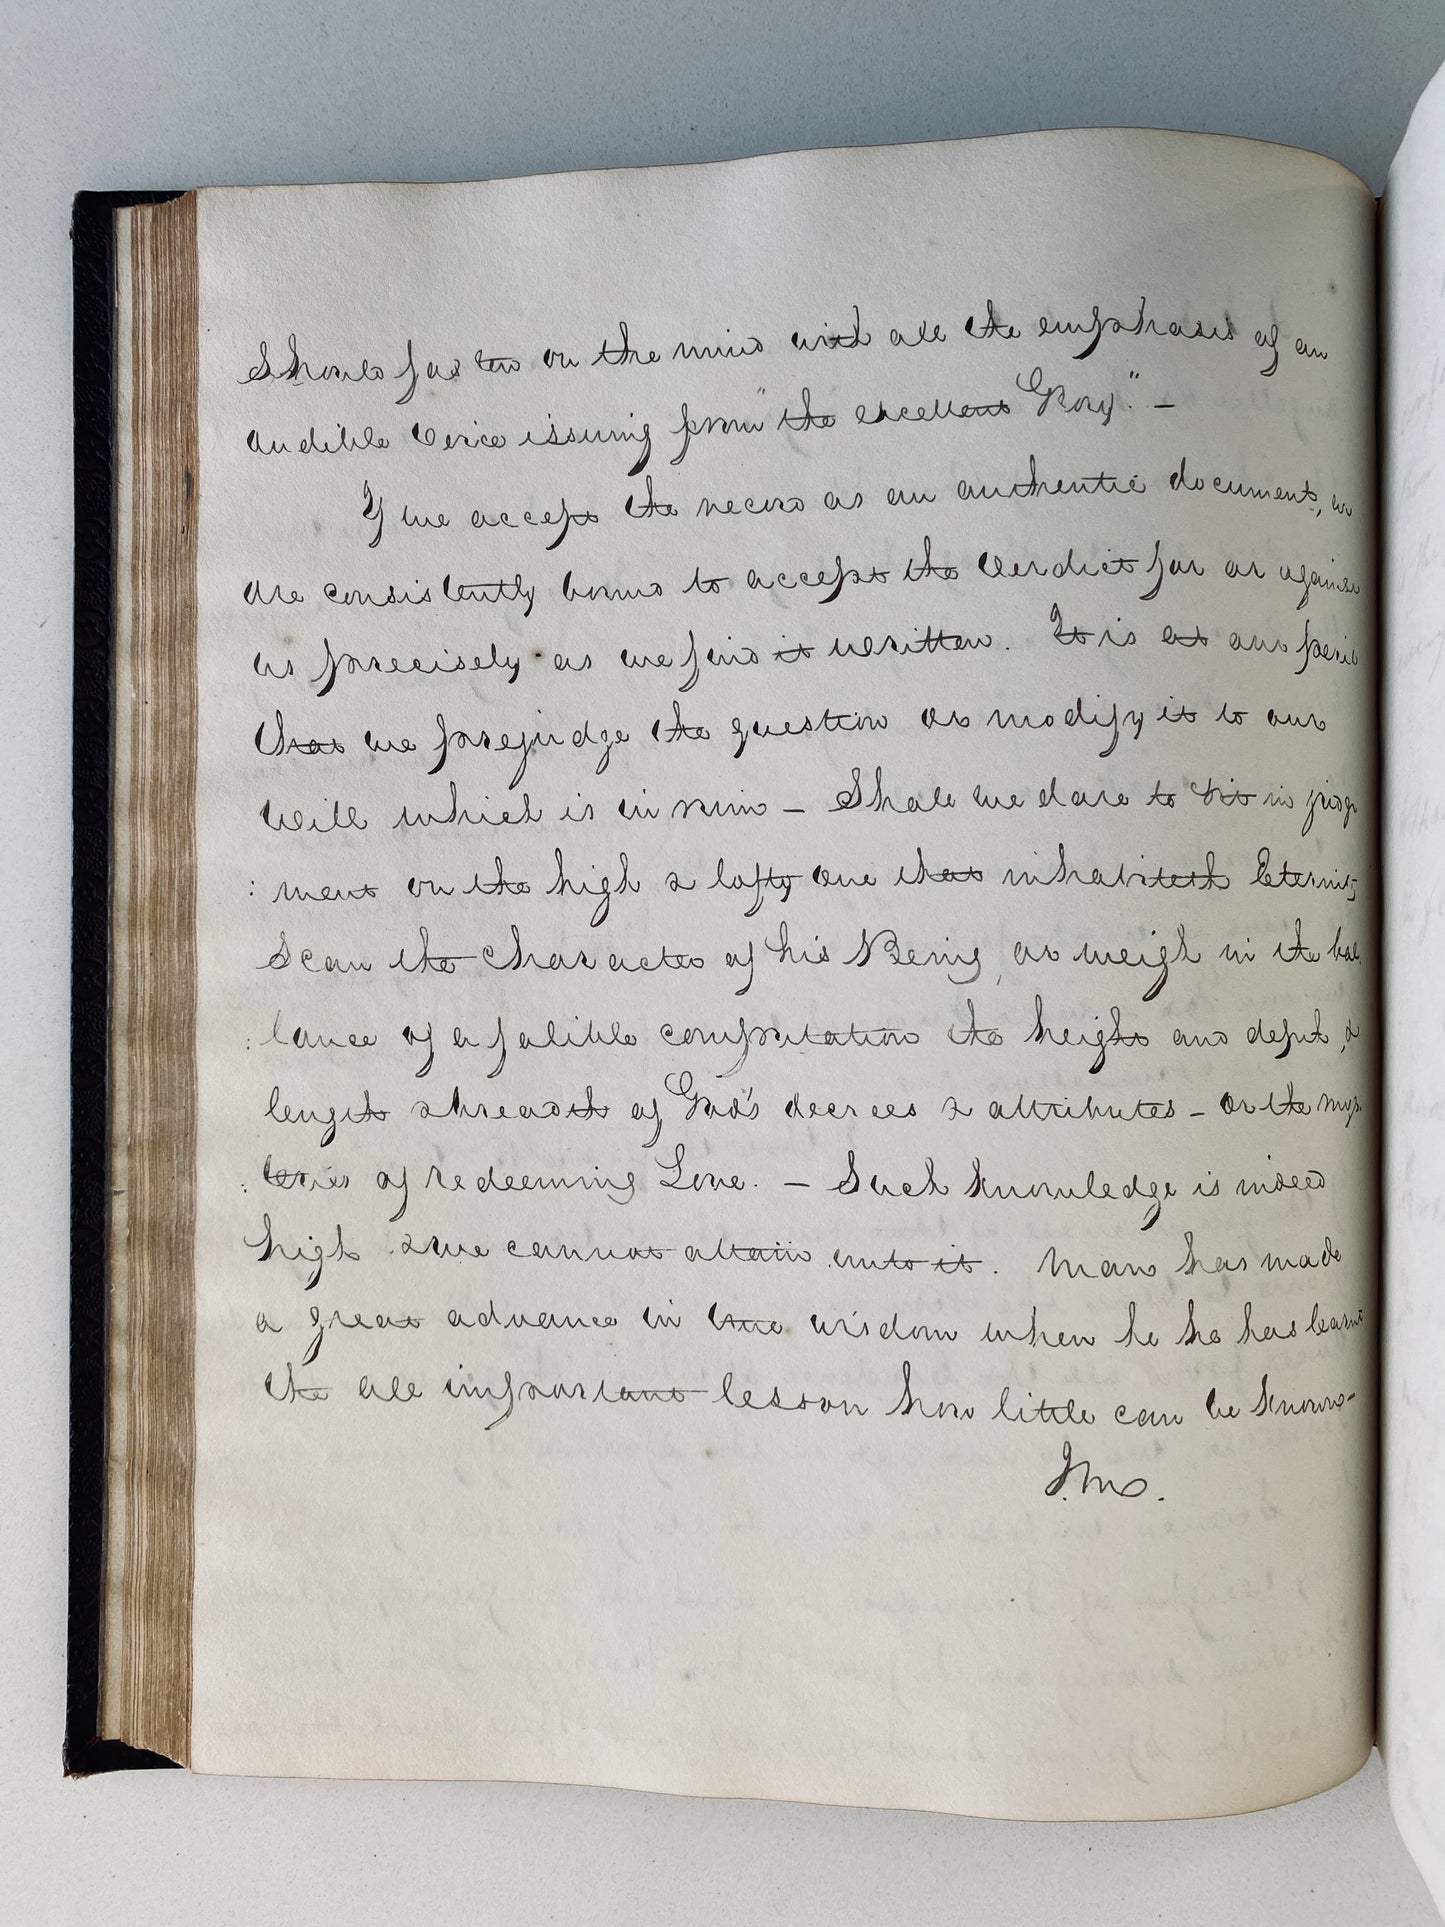 should fasten on the mind with all the emphasis of an
audible voice issuing from "the excellent Glory." —
If we accept the record as an authentic document, we
are consistently bound to accept the verdict for or against
us precisely as we find it written. It is at our peril
that we prejudge the question or modify it to our
will which is in ruin — Shall we dare to sit in judge
: ment on the high & lofty One that inhabiteth Eternity
scan the character of his Being, or weigh in the bal
: lance of a falible computation the height and depht, &
length & breadth of God's decrees & attributes — or the mys
: teries of redeeming Love. — Such knowledge is indeed
high & we cannot attain unto it. Man has made
a great advance in true wisdom when he he has learnt
the all important lesson how little can be known —